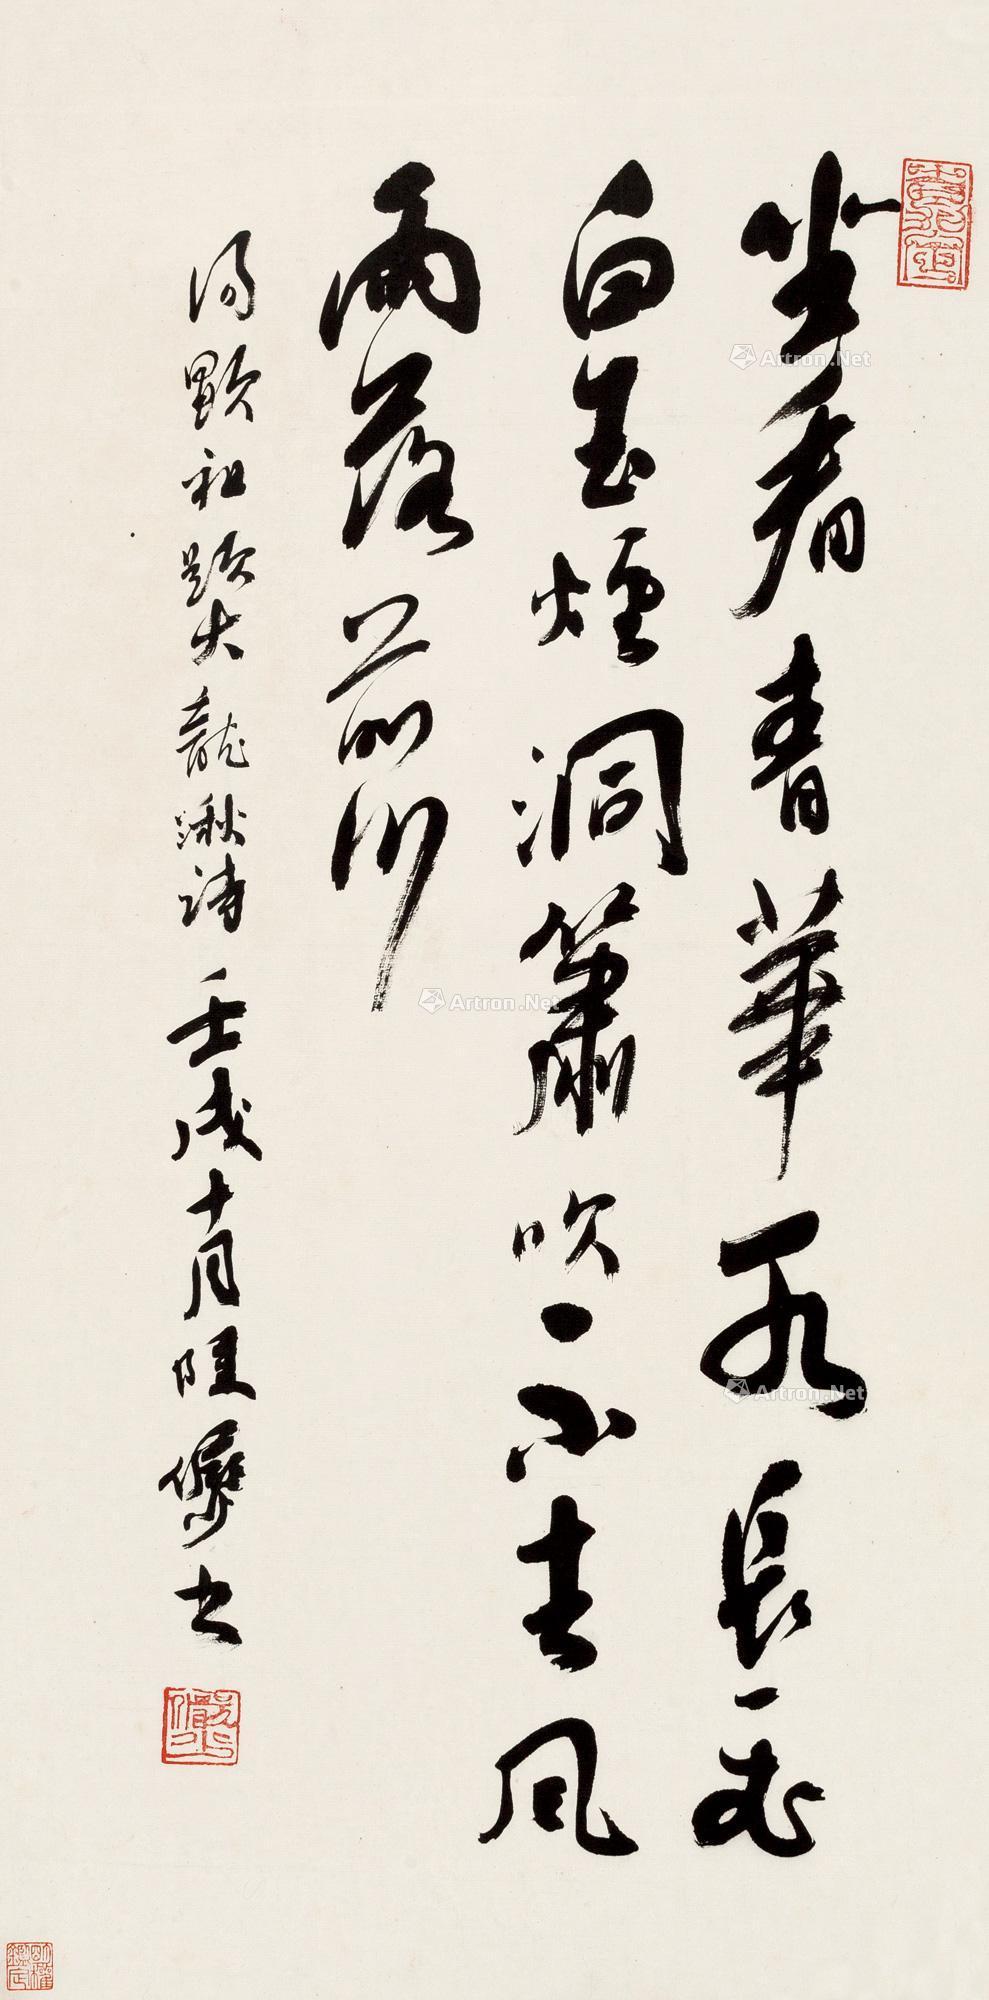 坐看青華水長飛
白玉煙洞簫吹不去風
雨落前川
湯顯祖題大龍湫詩 壬戌十月陸儼少書
Artron.Net
Artron.Net
Artron.Net